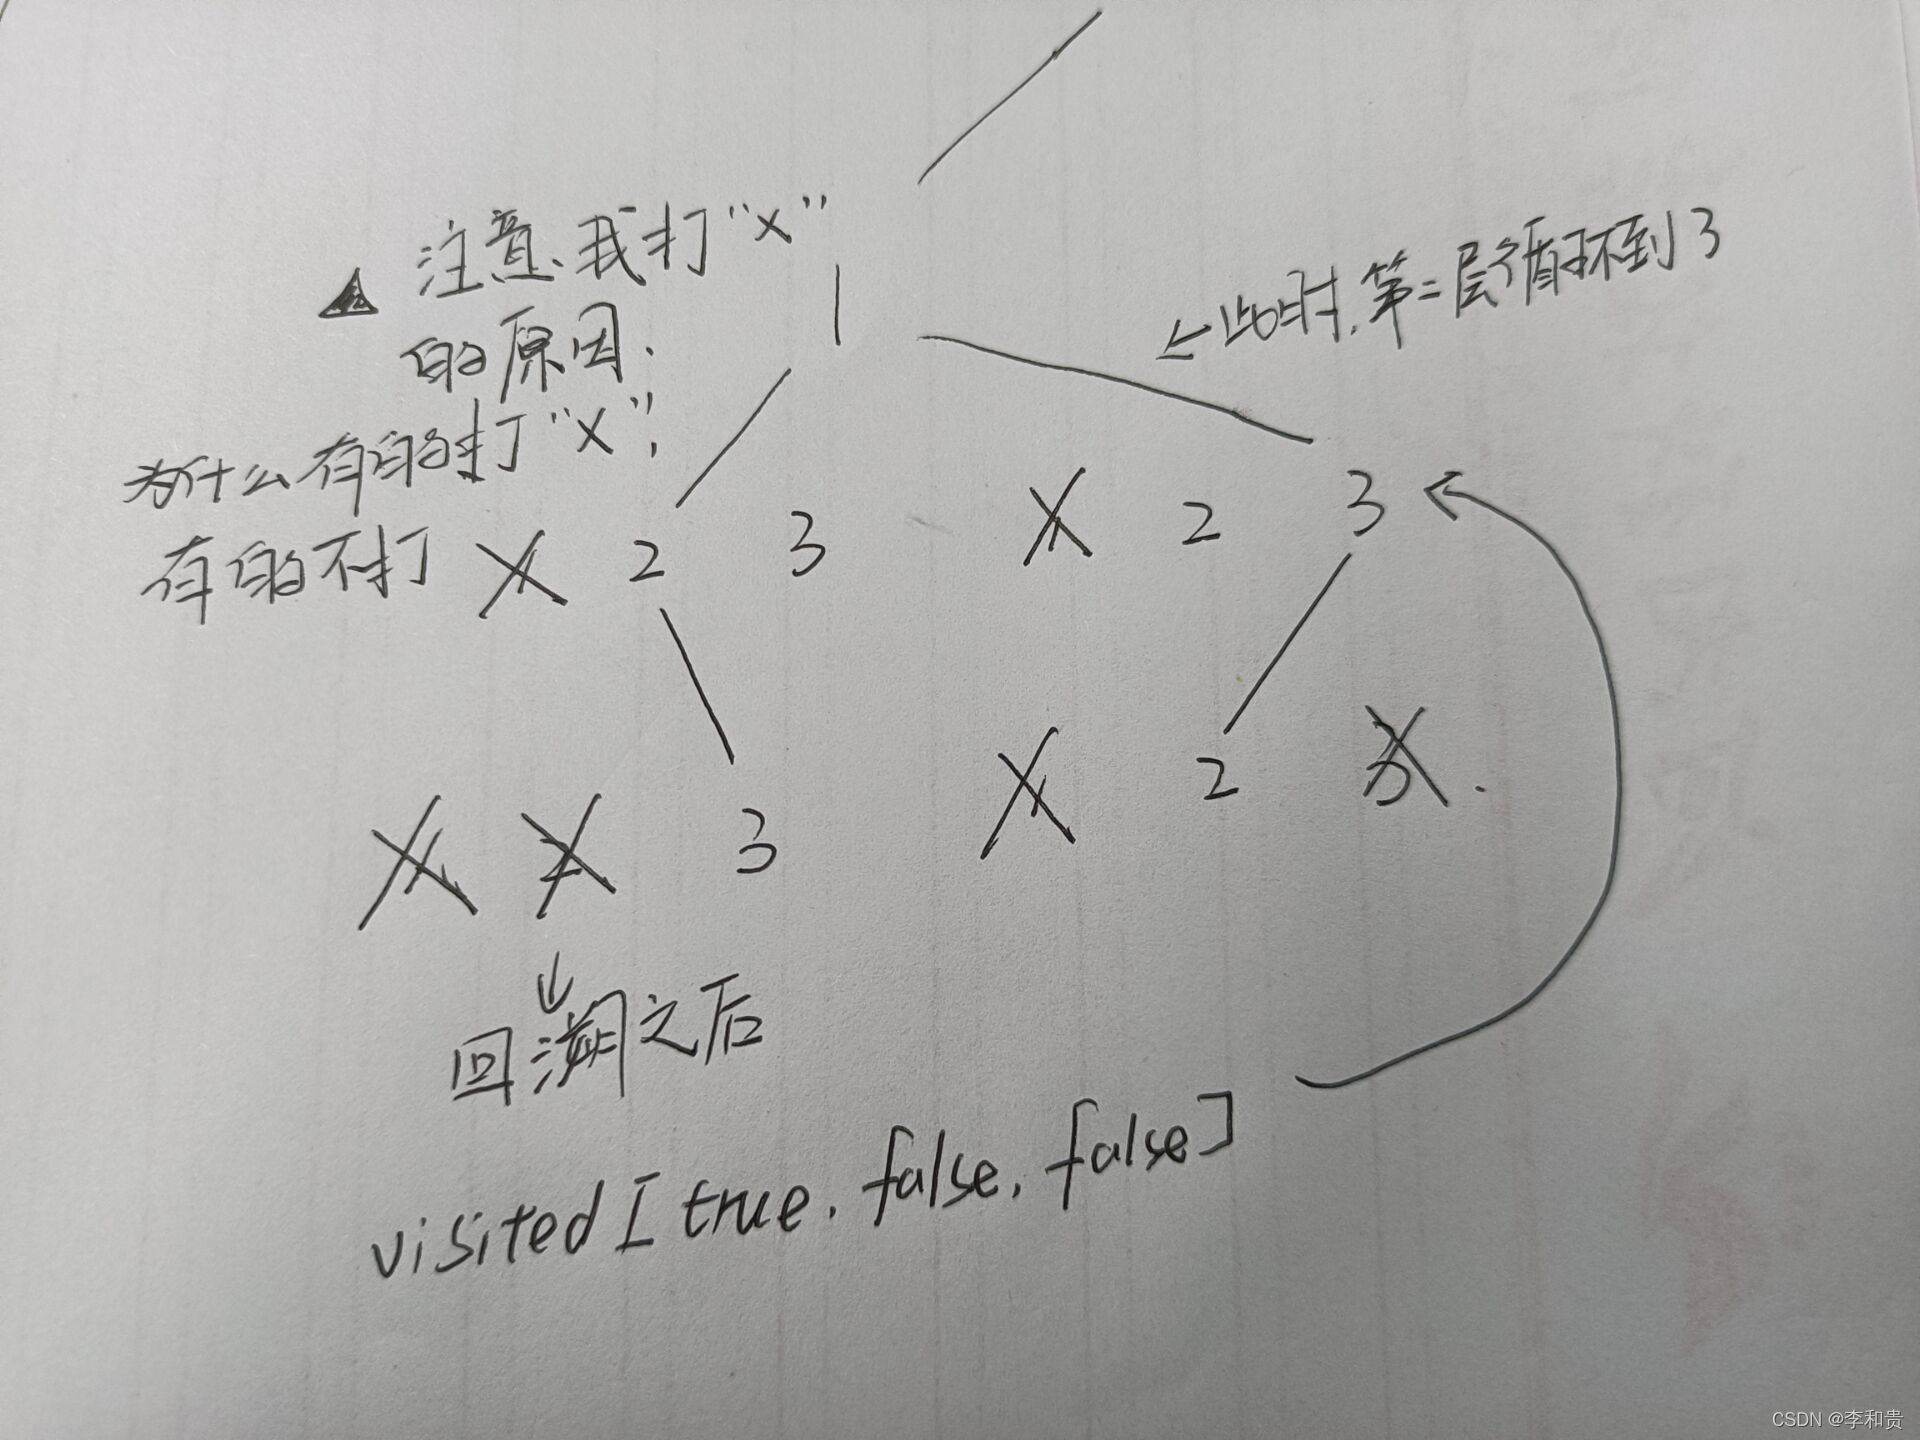 注意、我打“X”
的原因.
为什么有的打“X”,
有的不打
1
←此时.第二层循环到3
1 2 3
1 2 3
1 2 3
1 2 3.
↓
回溯之后
visited [true, false, false]
CSDN @李和贵